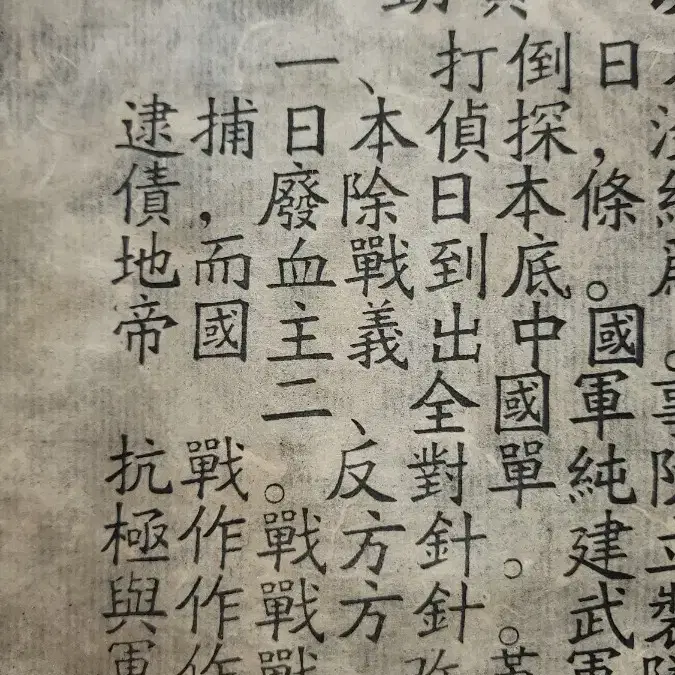 一、打倒日
逮捕日本偵探，
債，廢除日本條
地而血戰到底。
帝國主義出中國。
二、全國軍事
抗戰。反對單純防
極作戰方針。建立
與作戰方針。武製